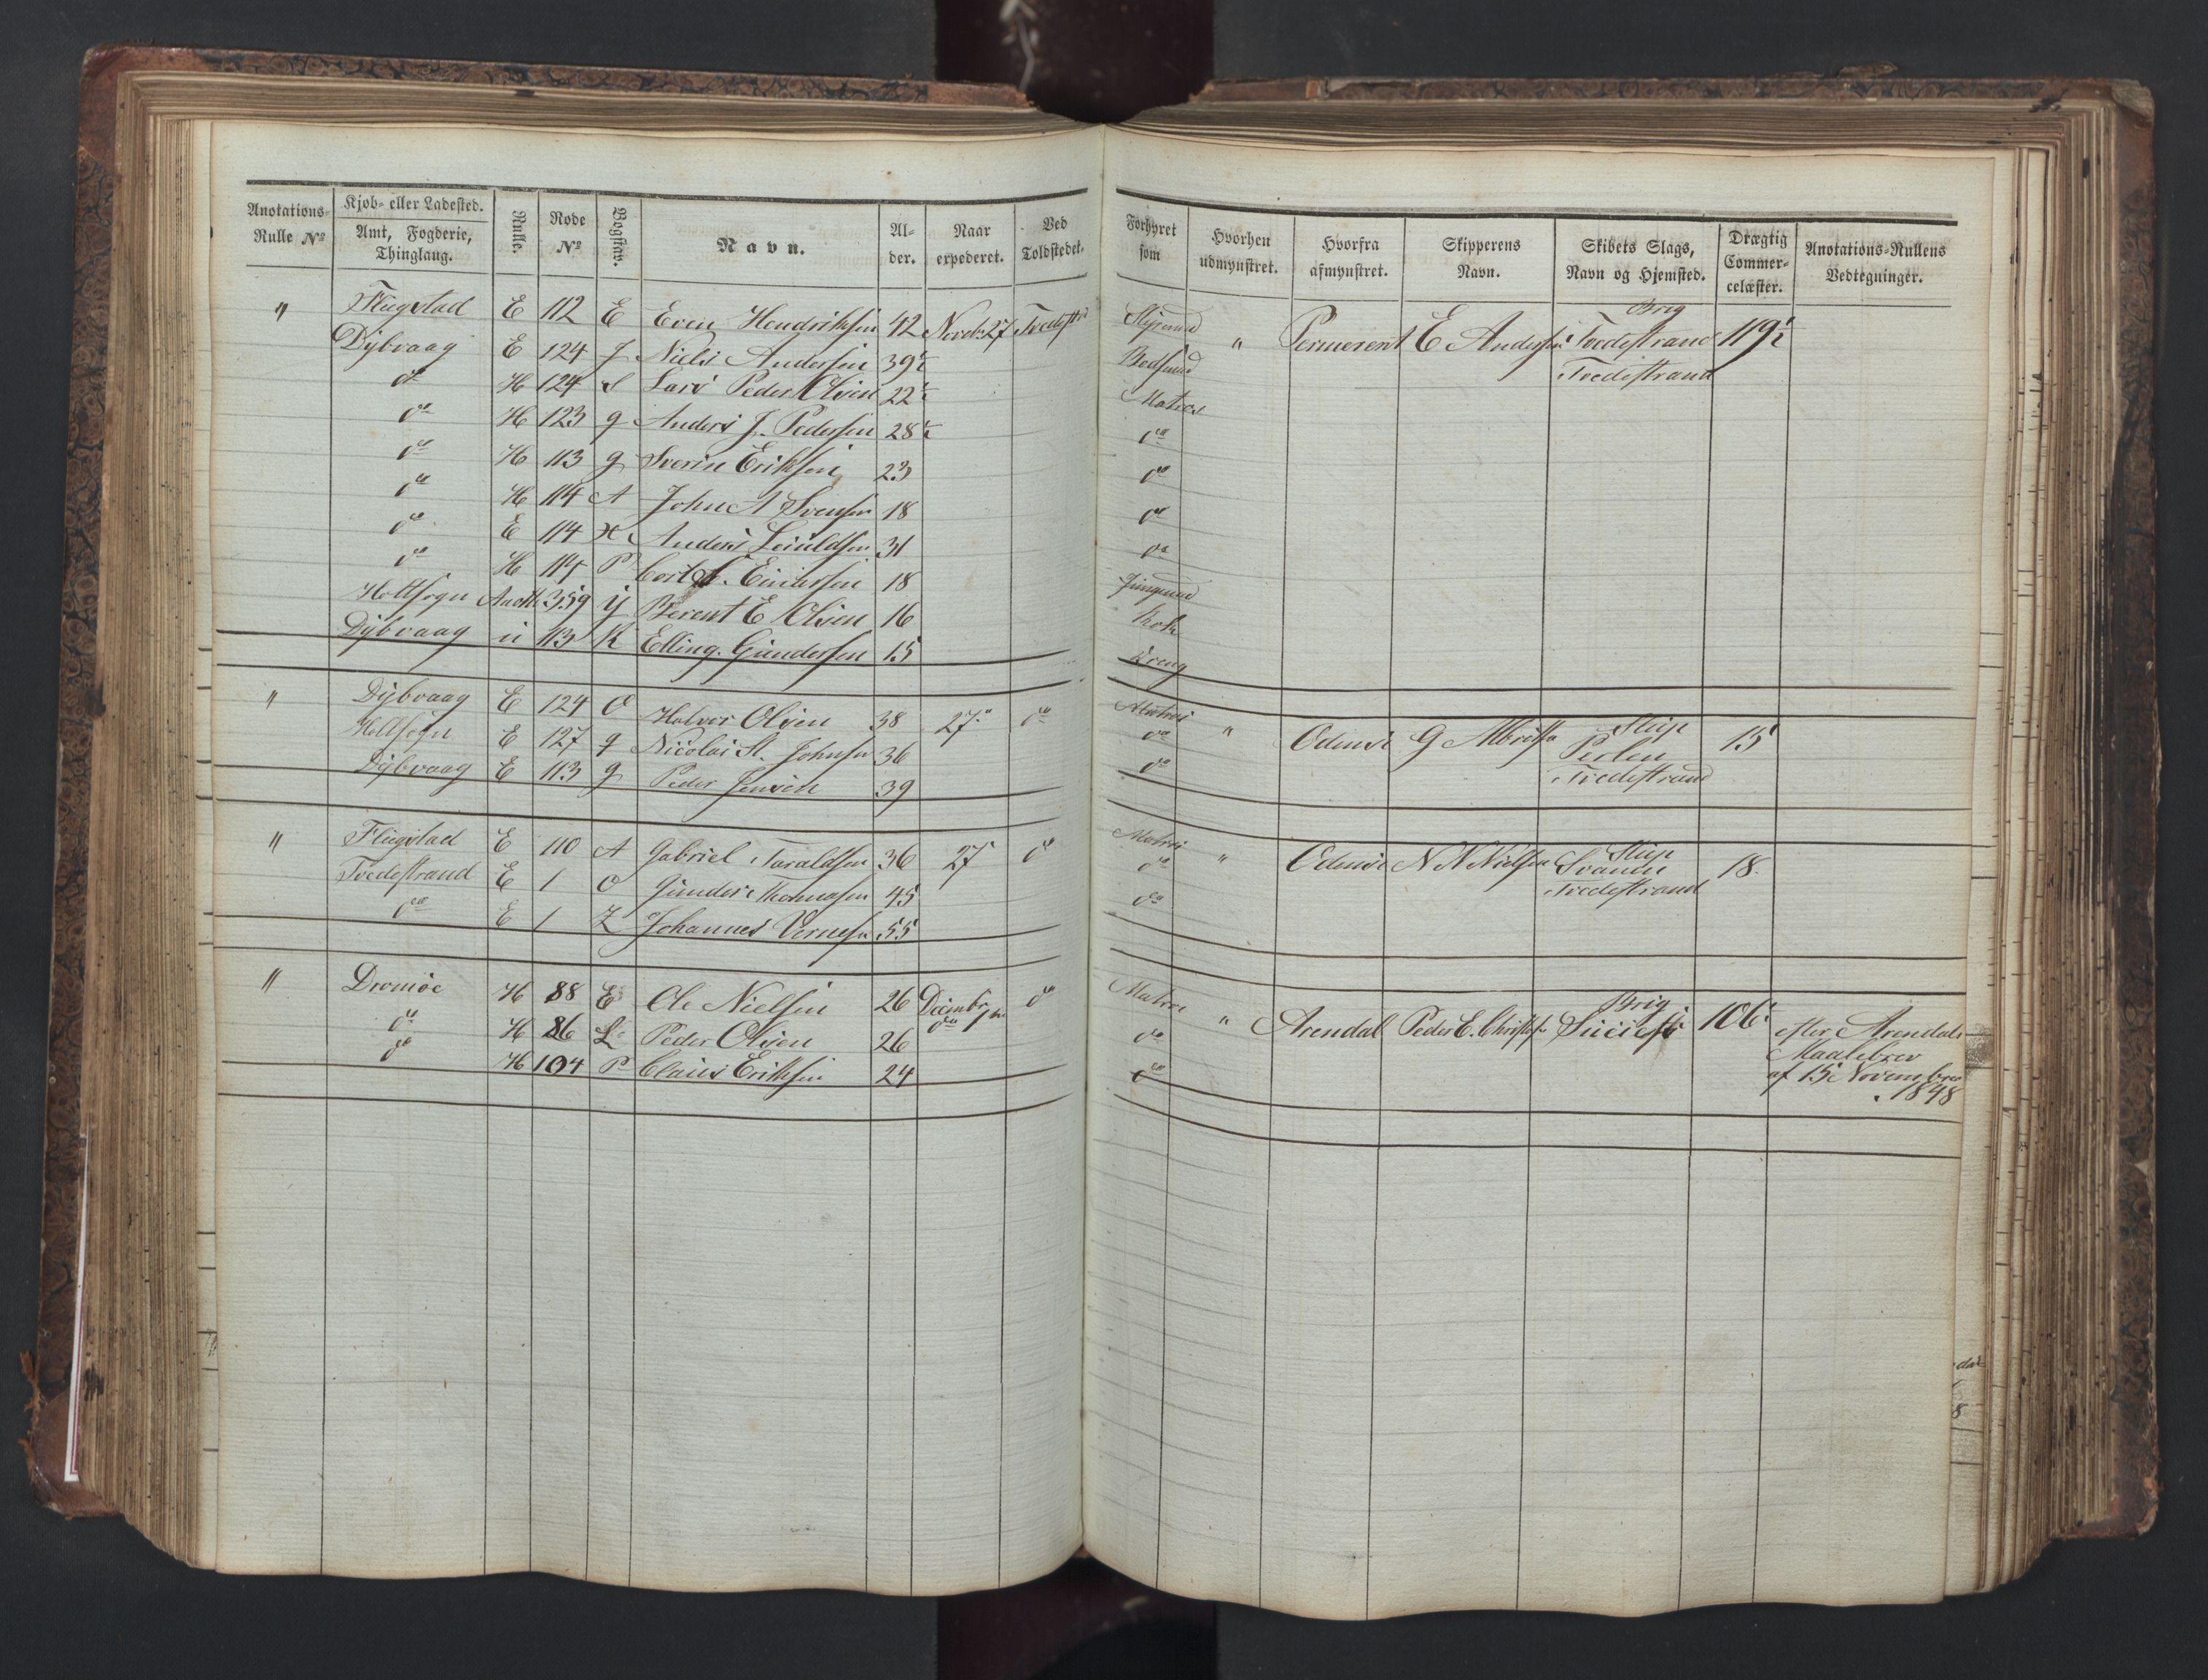 Anotations- Rulle No | Kjøb- eller Ladested. Amt, Fogderie, Thinglaug. | Rulle. | Rode No | Bogstav. | Navn. | Al- der. | Naar expederet. | Ved Toldstedet. | Forhyret som | Hvorhen udmynstret. | Hvorfra afmynstret. | Skipperens Navn. | Skibets Slags, Navn og Hjemsted. | Drægtig Commer- celæster. | Anotations-Rullens Vedtegninger.
" Flugstad E 112 E Even Hendriksen 42 Novbr 27 Tvedestrd Styrmd " E Andersen Brig Tvedestrand Tvedestrand 119½
Dybvaag E 124 J Niels Andersen 39½ Bodsmd
do H 124 S Lars Peder Olsen 22½ Matros
do H 123 g Anders J. Pedersen 28½ do
do H 113 g Sverin Eriksen 23 do
do H 114 A John A Svensen 18 do
do E 114 H Anders 31 do
do H 114 P 18 Jungmd
Holtsogn 359 ij Berent E Olsen 16 Kok
Dybvaag ü 113 K Elling Gundersen 15 Dreng
" Dybvaag E 124 O Halvor Olsen 38 27 do Matros " Odense G Slup Perlen Tvedestrand 15
Holtsogn E 127 q Nicolai St. Johnsen 36 do
Dybvaag E 113 g Peder Jensen 39 do
" Flugstad E 110 A Gabriel Taraldsen 36 27 do Matros " Odense N N Nielsen Slup Svanen Tvedestrand 18.
Tvedestrand E 1 O Gunder Thomasen 45 do
do E 1 Z Johannes 55 do
" Dromöe H 88 E Ole Nielsen 26 Decembr do Matros " Arendal Peder E. Christofs Brig Sucess 106 efter Arendals
do H 86 L Peder Olsen 26 do Maalebrev
do H 104 P Claus Eriksen 24 do af 15 Novembre
1848